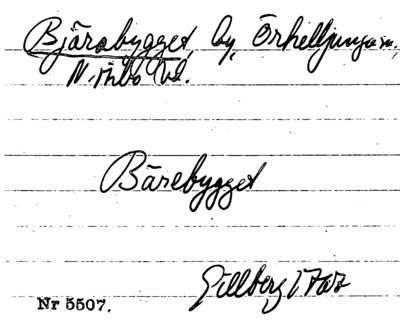 Bjärabygget, by, Örkelljunga sn,
N. Åsbo hd.
Bärebygget
Gillberg 1767
Nr 5507.